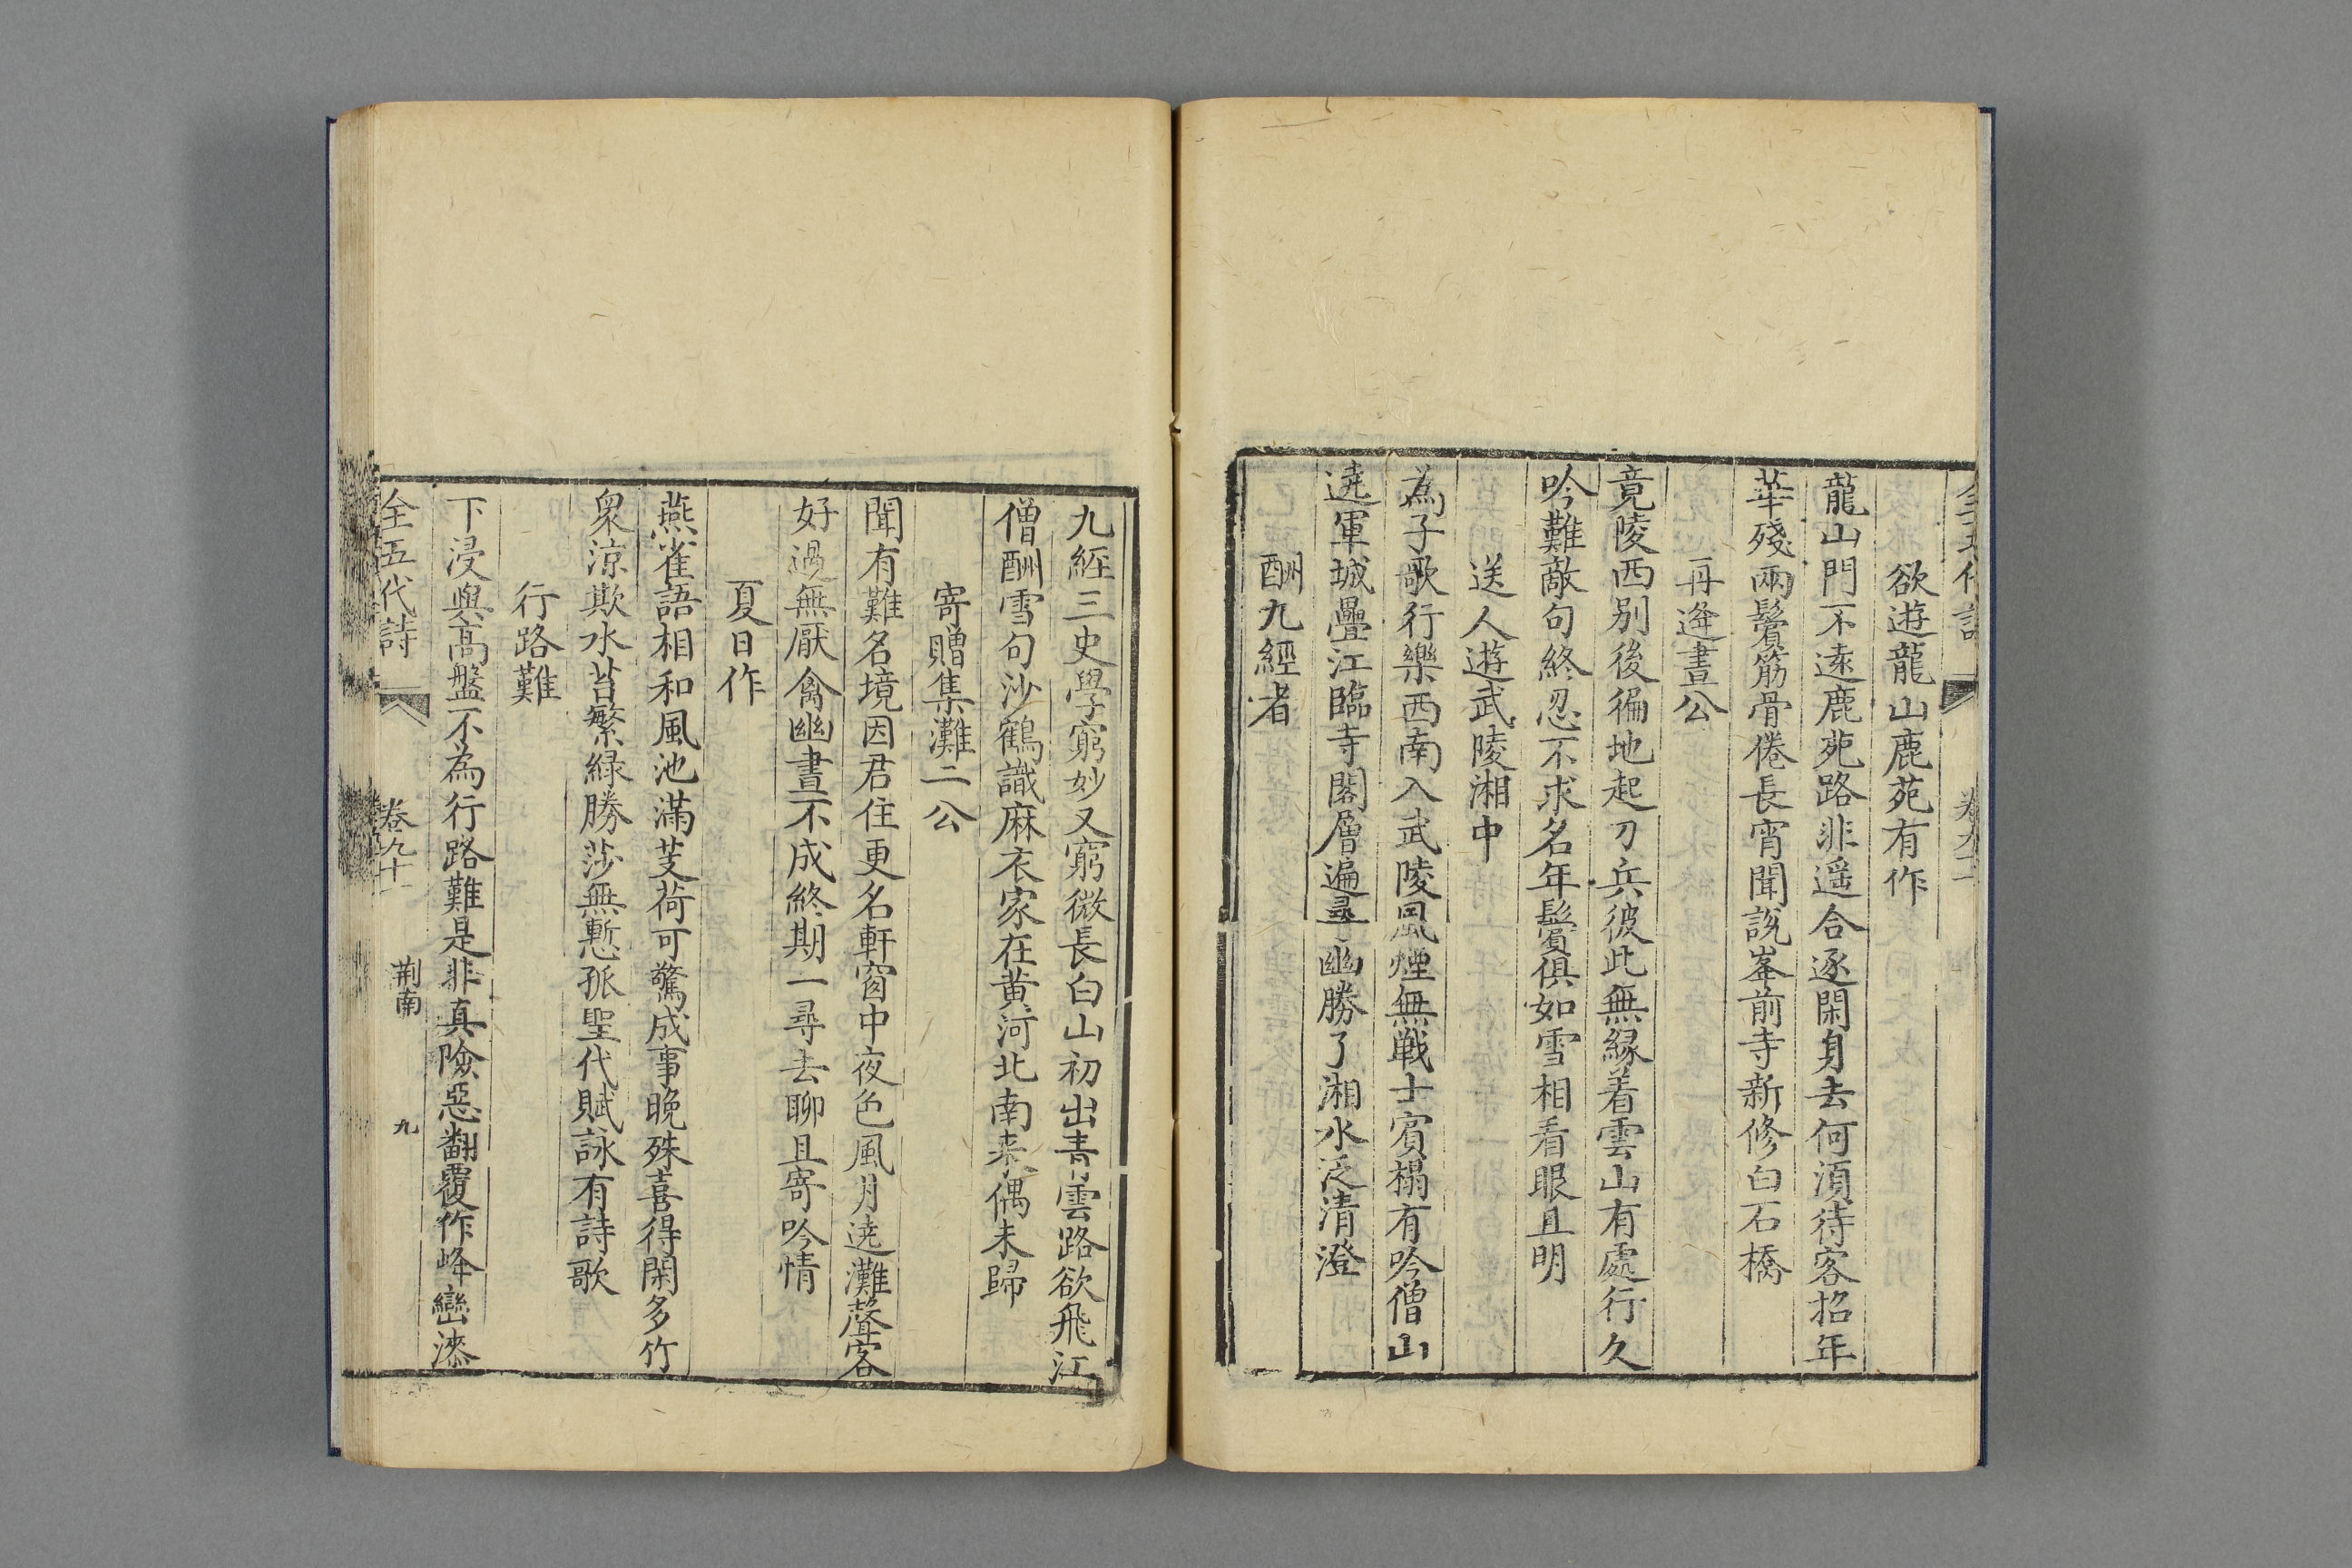 欲遊龍山鹿苑有作
龍山門不遠鹿苑路非遥合逐閑身去何須待客招年
華殘兩鬢筋骨倦長宵聞說峯前寺新修白石橋
再逢晝公
竟陵西别後徧地起刀兵彼此無緣着雲山有處行久
吟難敵句終忍不求名年鬢俱如雪相看眼且明
送人遊武陵湘中
為子歌行樂西南入武陵風煙無戦士賓榻有吟僧山
遶軍城疊江臨寺閣層遍尋幽勝了湘水泛清澄
酬九經者
九經三史學窮妙又窮微長白山初出青雲路欲飛江
僧酬雪句沙鶴識麻衣家在黄河北南来偶未歸
寄贈集灘二公
聞有難名境因君住更名軒窗中夜色風月遶灘聲客
好過無厭禽幽晝不成終期一尋去聊且寄吟情
夏日作
燕雀語相和風池滿芰荷可驚成事晚殊喜得閑多竹
衆涼欺水苔繁緑勝莎無慙孤聖代賦詠有詩歌
行路難
下浸與高盤不為行路難是非真險惡翻覆作峰巒漆
全五代詩
卷九十一
荆南
九